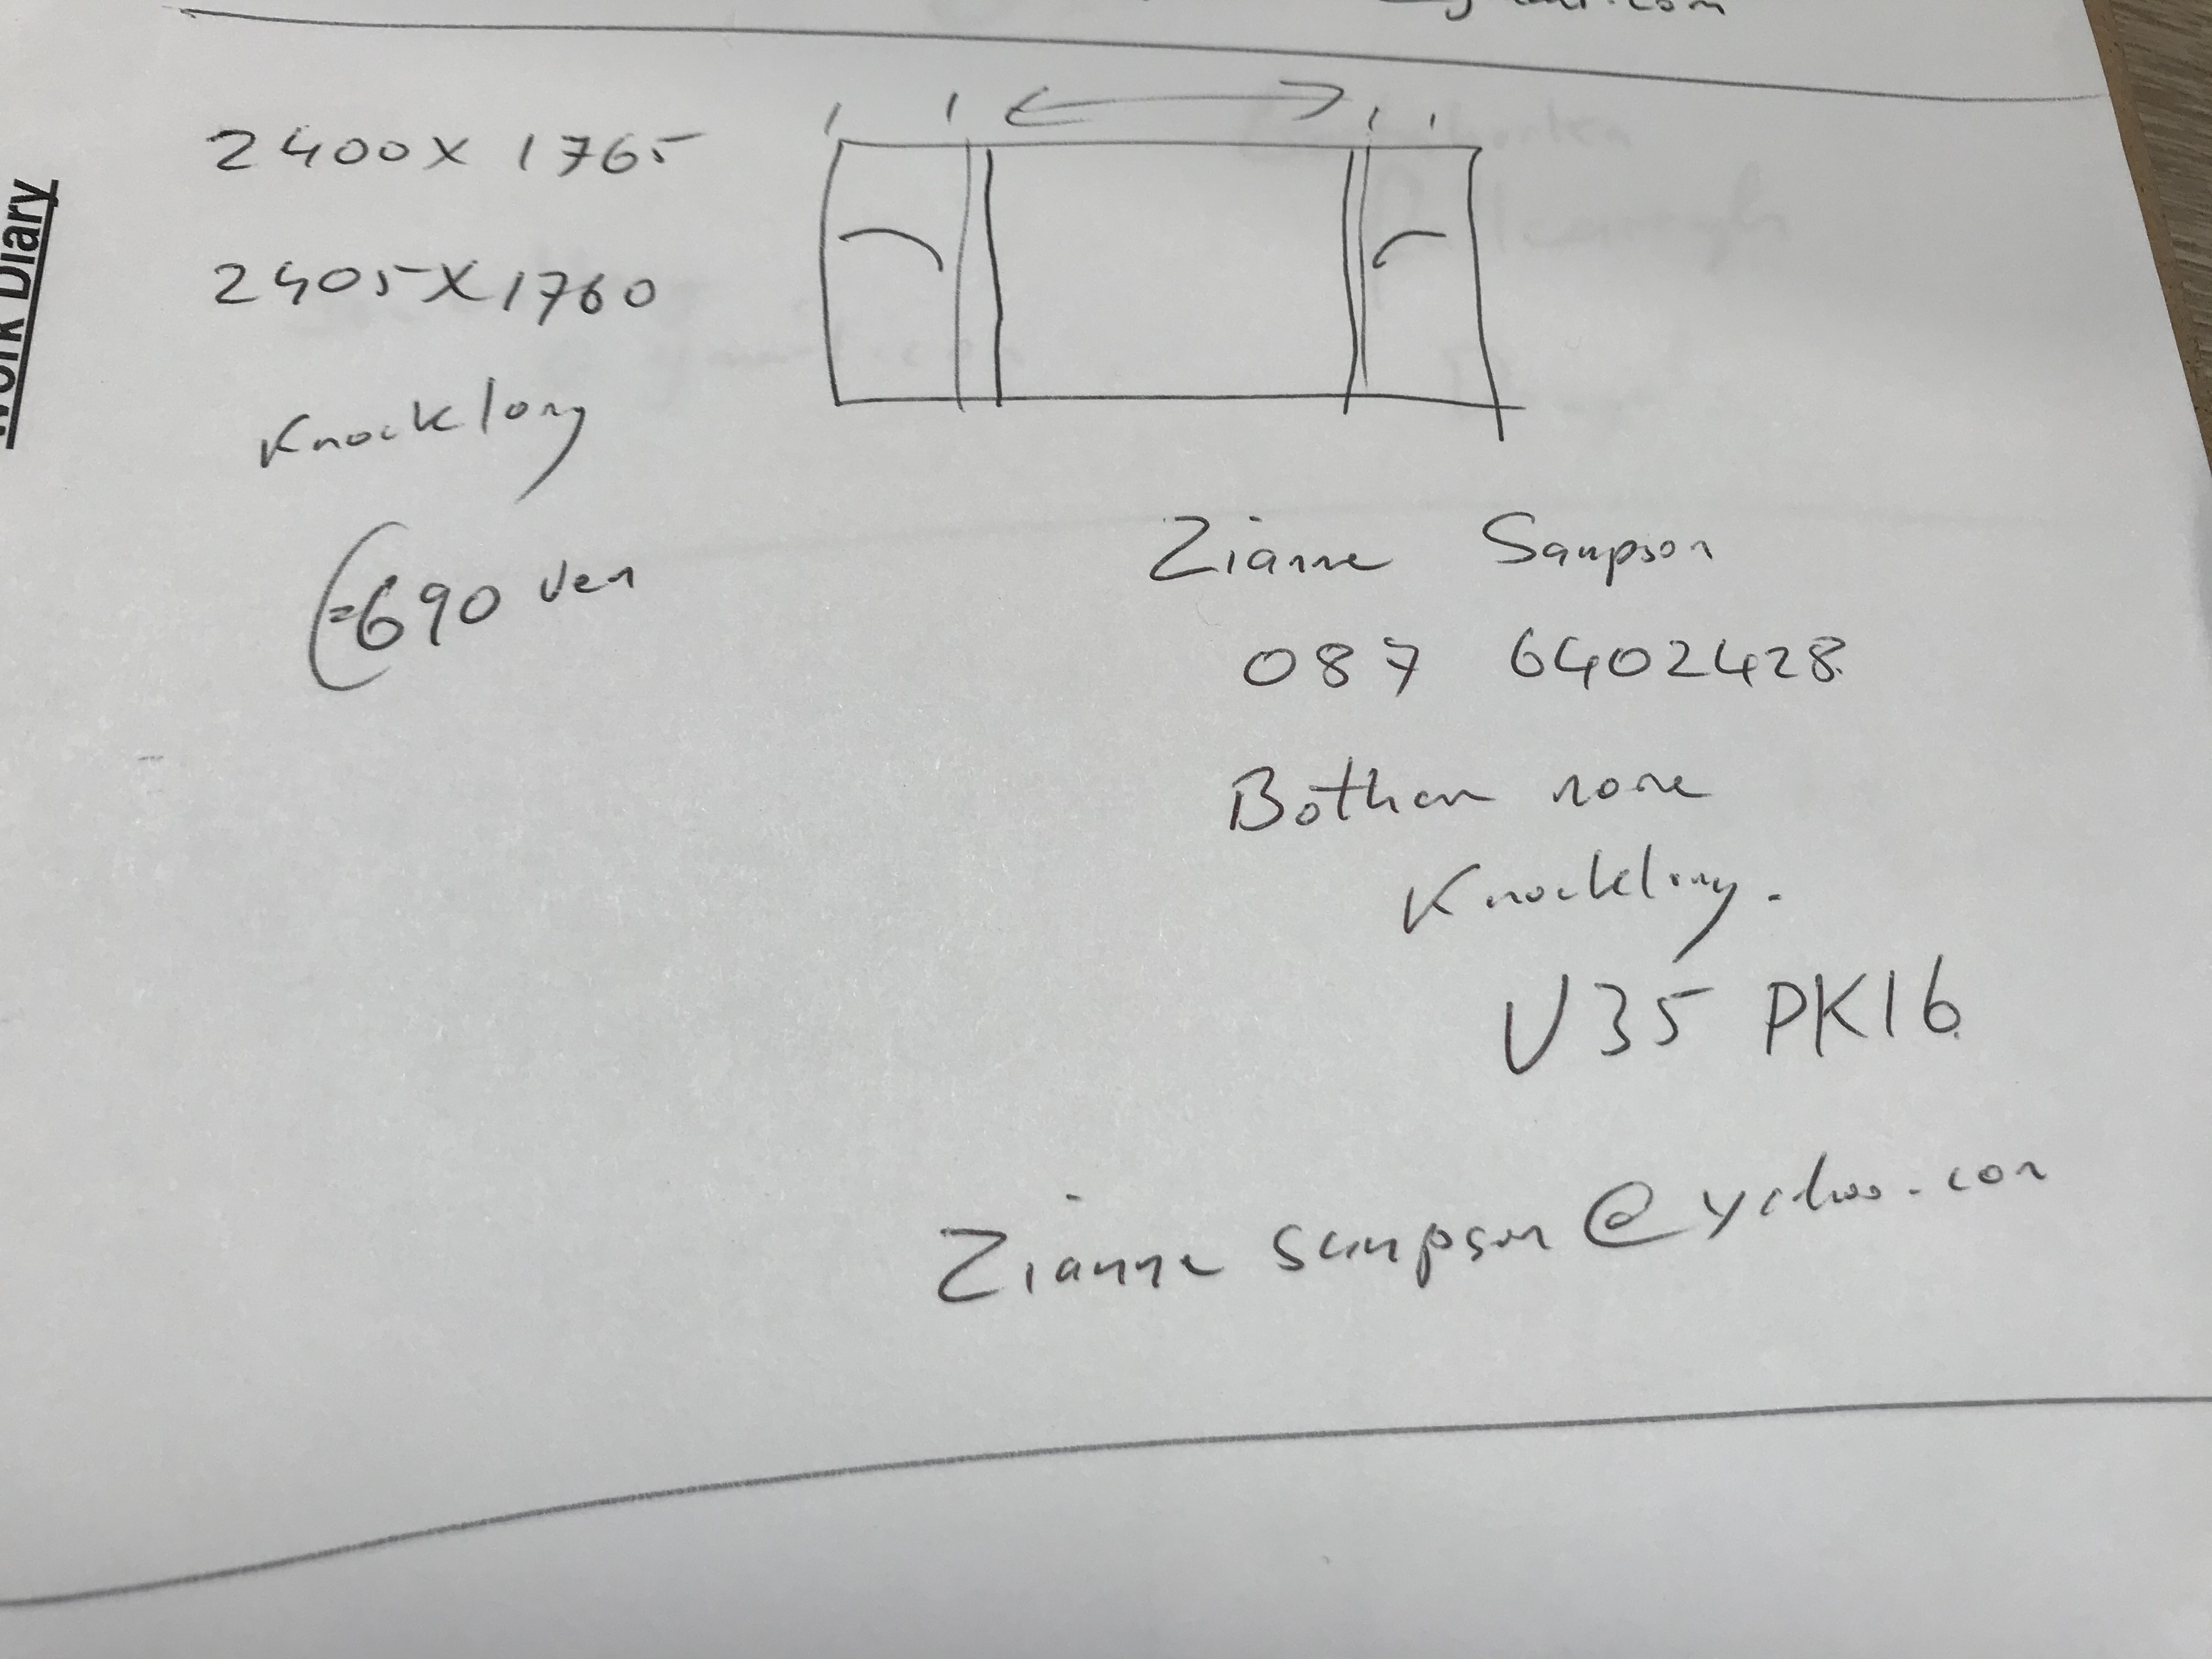 Work Diary
2400 X 1765
2405 X 1760
Knocklong
690
Zianne Sampson
087 6402428
Bothar
Knocklong.
V35 PK16
Zianne sampson@yahoo.com